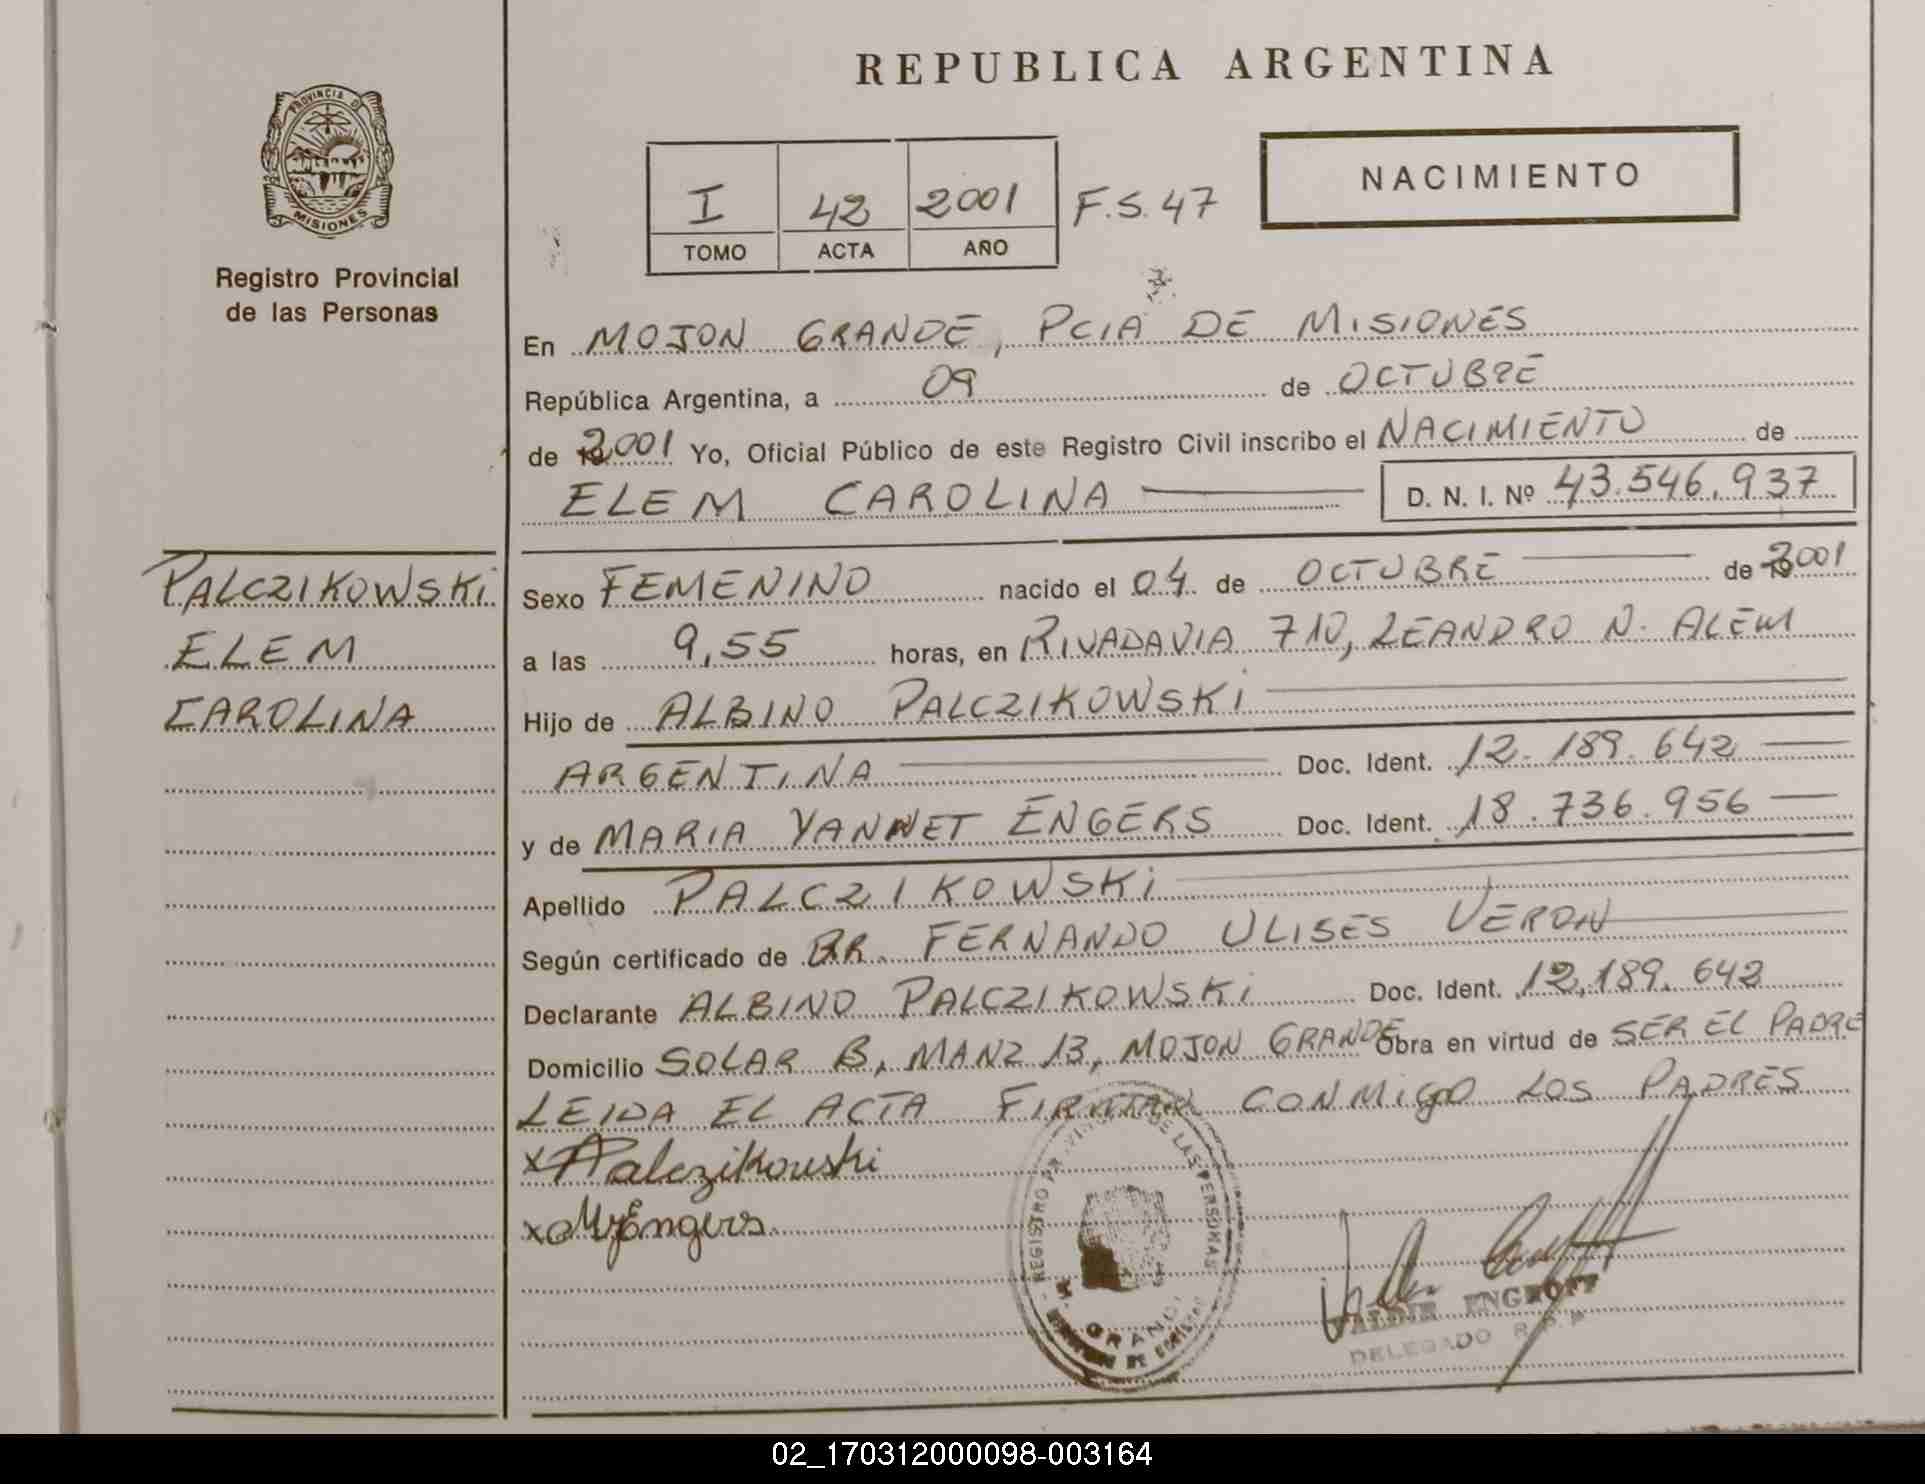 REPUBLICA ARGENTINA
PROVINCIA D
MISIONES
Registro Provincial
de las Personas
I 42 2001 F.S. 47
TOMO ACTA AÑO
NACIMIENTO
En MOJON GRANDE, PCIA DE MISIONES
República Argentina, a 09 de OCTUBRE
de 2001 Yo, Oficial Público de este Registro Civil inscribo el NACIMIENTO de
ELEM CAROLINA D. N. I. Nº 43.546.937
PALCZIKOWSKI
ELEM
CAROLINA
Sexo FEMENINO nacido el 04 de OCTUBRE de 2001
a las 9,55 horas, en RIVADAVIA 710, LEANDRO N. ALEM
Hijo de ALBINO PALCZIKOWSKI
ARGENTINA Doc. Ident. 12.189.642
y de MARIA YANNET ENGERS Doc. Ident. 18.736.956
Apellido PALCZIKOWSKI
Según certificado de DR. FERNANDO ULISES VERON
Declarante ALBINO PALCZIKOWSKI Doc. Ident. 12,189.642
Domicilio SOLAR B, MANZ 13, MOJON GRANDE Obra en virtud de SER EL PADRE
LEIDA EL ACTA FIRMAN CONMIGO LOS PADRES
x APalczikowski
x MyEngers
REGISTRO PROVINCIAL DE LAS PERSONAS
M. GRANDE
ENGROFF
DELEGADO R.P.P.
02_170312000098-003164